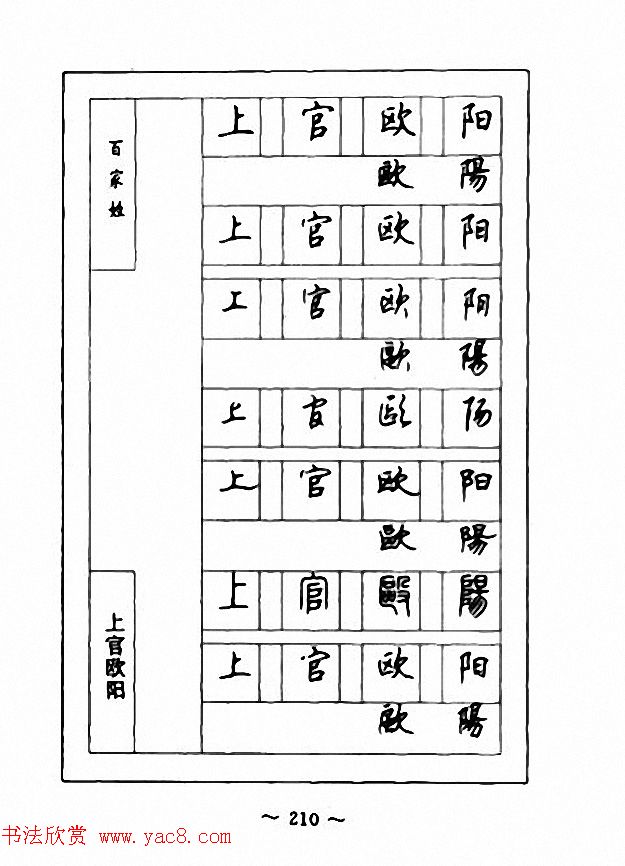 百家姓
上官欧阳
上 官 欧 阳
歐 陽
上 官 欧 阳
上 官 欧 阳
歐 陽
上 官 欧 阳
上 官 欧 阳
歐 陽
上 官 毆 陽
上 官 欧 阳
歐 陽
~ 210 ~
书法欣赏 www.yac8.com